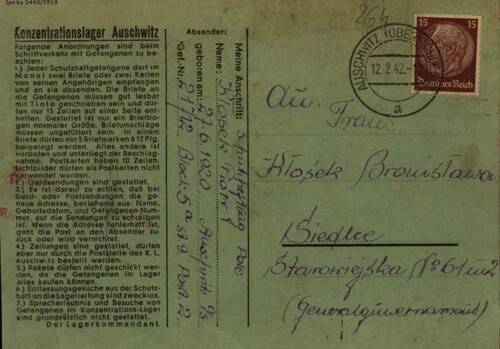 Konzentrationslager Auschwitz
Folgende Anordnungen sind beim
Schriftverkehr mit Gefangenen zu be-
achten:
1.) Jeder Schutzhaftgefangene darf im
Monat zwei Briefe oder zwei Karten
von seinen Angehörigen empfangen
und an sie absenden. Die Briefe an
die Gefangenen müssen gut lesbar
mit Tinte geschrieben sein und dür-
fen nur 15 Zeilen auf einer Seite ent-
halten. Gestattet ist nur ein Briefbo-
gen normaler Größe. Briefumschläge
müssen ungefüttert sein. In einem
Briefe dürfen nur 5 Briefmarken à 12 Pfg.
beigelegt werden. Alles andere ist
verboten und unterliegt der Beschlag-
nahme. Postkarten haben 10 Zeilen.
Lichtbilder dürfen als Postkarten nicht
verwendet werden.
2.) Geldsendungen sind gestattet.
3.) Es ist darauf zu achten, daß bei
Geld- oder Postsendungen die ge-
naue Adresse, bestehend aus: Name,
Geburtsdatum, und Gefangenen-Num-
mer, auf die Sendungen zu schreiben
ist. Wenn die Adresse fehlerhaft ist,
geht die Post an den Absender zu-
rück oder wird vernichtet.
4.) Zeitungen sind gestattet, dürfen
aber nur durch die Poststelle des K. L.
Auschwitz bestellt werden.
5.) Pakete dürfen nicht geschickt wer-
den, da die Gefangenen im Lager
alles kaufen können.
6.) Entlassungsgesuche aus der Schutz-
haft an die Lagerleitung sind zwecklos.
7.) Sprecherlaubnis und Besuche von
Gefangenen im Konzentrations-Lager
sind grundsätzlich nicht gestattet.
Der Lagerkommandant.
Absender:
Meine Anschrift: Schutzhäftling Pole
Name: Kłopek Piotr
geboren am: 27.6.1920 Auschwitz O/S
Gef.-Nr. Block 5a st 9 Post. 2
264
AUSCHWITZ (OBERSCHLES)
12.2.42.-
a
15 15
Deutsches Reich
An.
Frau.
Kłopek Bronisława
Siedlce
Staromiejska No 61 m 2
(Generalgouvernement)